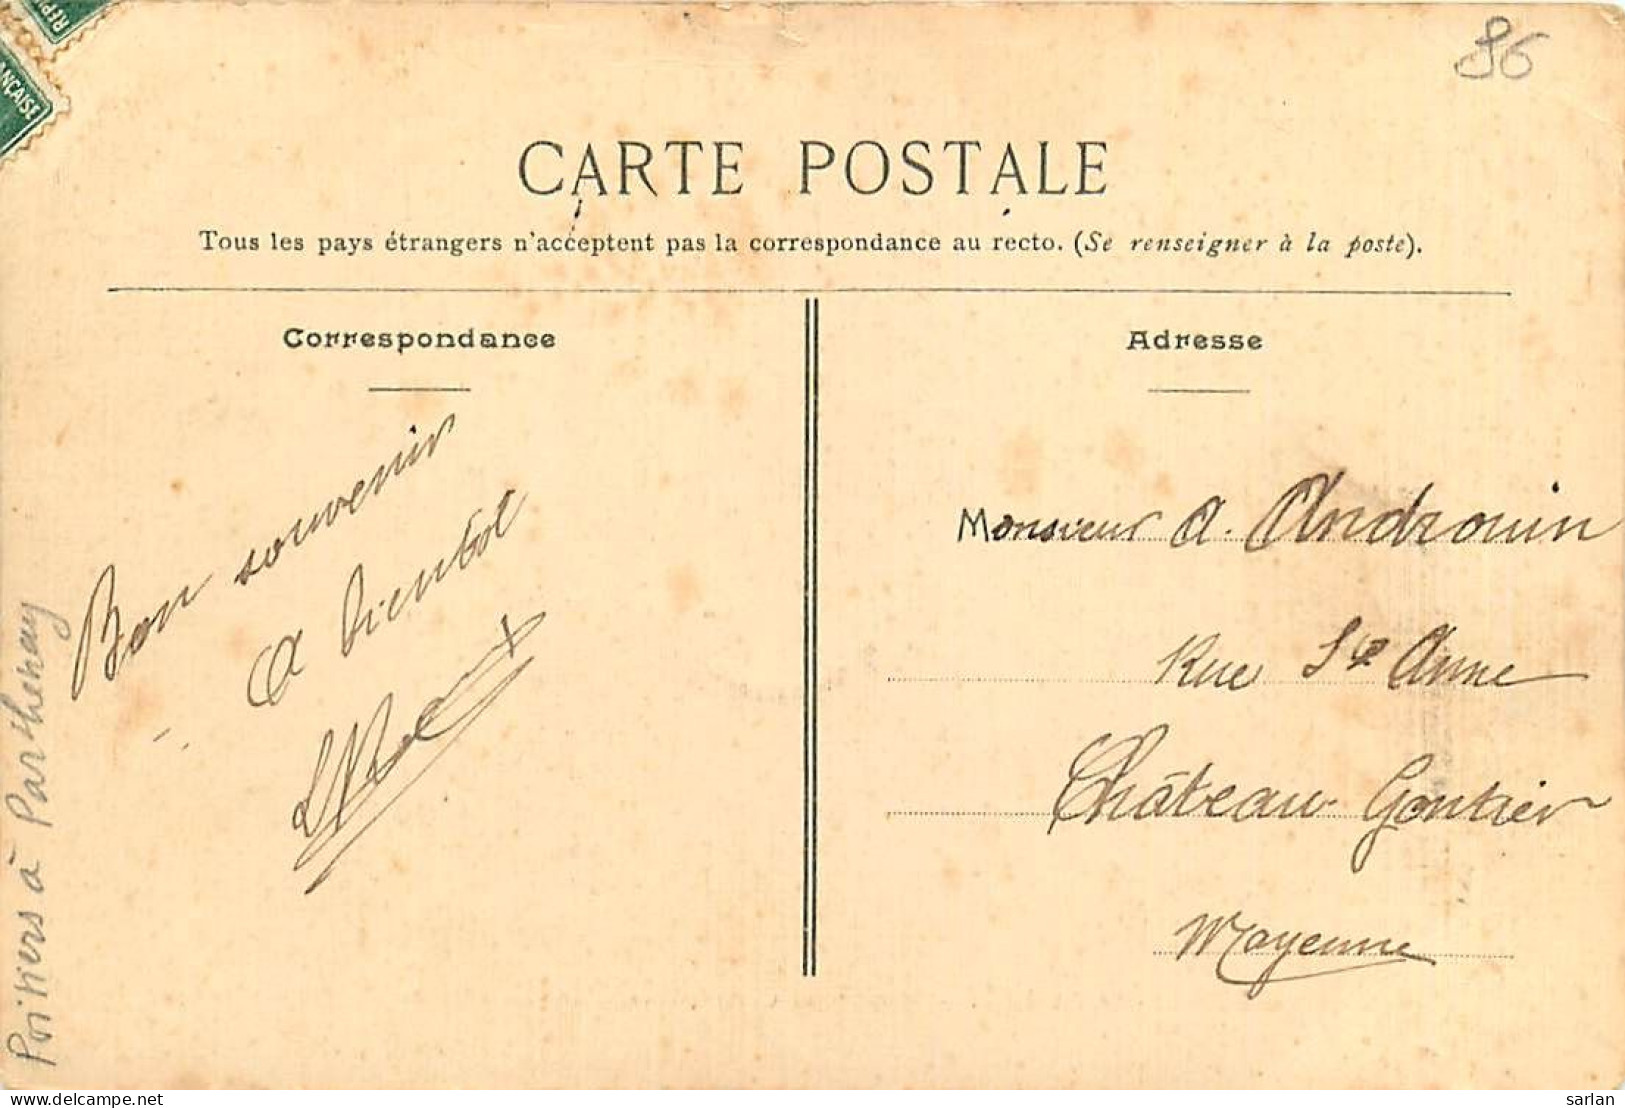 RÉP
NÇAISE
86
CARTE POSTALE
Tous les pays étrangers n'acceptent pas la correspondance au recto. (Se renseigner à la poste).
Correspondance
Adresse
Bon souvenir
A bientôt
Monsieur A. Androuin
Rue Ste Anne
Château-Gontier
Mayenne
Poitiers à Parthenay
www.delcampe.net
sarlan